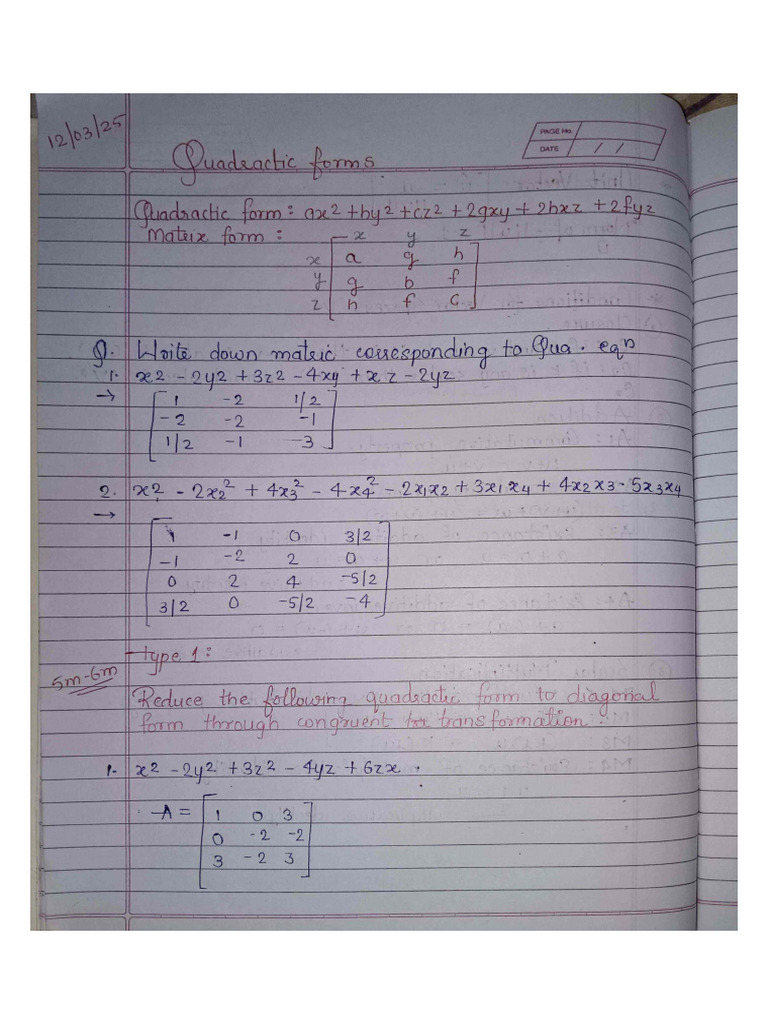 12/03/25
PAGE No.
DATE / /
Quadractic forms
Quadractic form: ax2 + by2 + cz2 + 2gxy + 2hxz + 2fyz
Matrix form :
x y z
x a g h
y g b f
z h f c
Q. Write down matric corresponding to Qua. eqn
1. x2 - 2y2 + 3z2 - 4xy + xz - 2yz
→ 1 -2 1/2
-2 -2 -1
1/2 -1 -3
2. x2 - 2x2² + 4x3² - 4x4² - 2x1x2 + 3x1x4 + 4x2x3 - 5x3x4
→
1 -1 0 3/2
-1 -2 2 0
0 2 4 -5/2
3/2 0 -5/2 -4
Type 1:
5m-6m
Reduce the following quadractic form to diagonal
form through congruent transformation.
1. x2 - 2y2 + 3z2 - 4yz + 6zx .
A =
1 0 3
0 -2 -2
3 -2 3